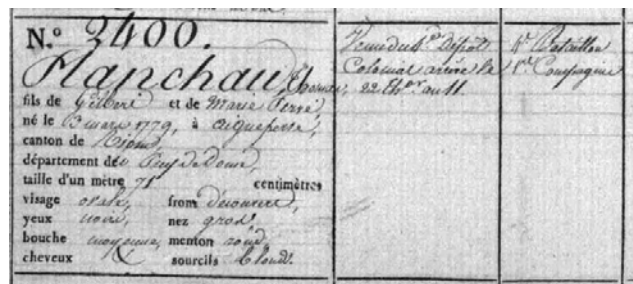 N.º 2400.
Planchau, Thomas,
fils de Gilbert et de Marie Ferré,
né le 13 mars 1779, à aigueperse,
canton de Riom,
département du Puy de Dome,
taille d'un mètre 71 centimètres
visage ovale, front découvert,
yeux noirs, nez gros,
bouche moyenne, menton rond,
cheveux & sourcils blonds.
Venu du Dépôt
Colonial arrivé le
22 au 11.
4e Bataillon
1re Compagnie